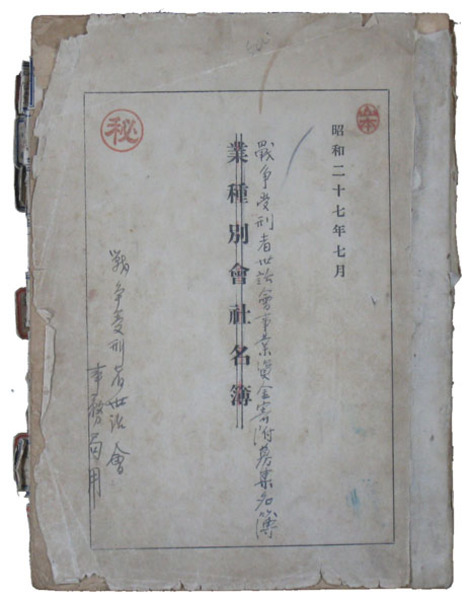 昭和二十七年七月
戰争受刑者世話會事業資金寄附募集名簿
業種別會社名簿
秘
戰争受刑者世話會
事務局用